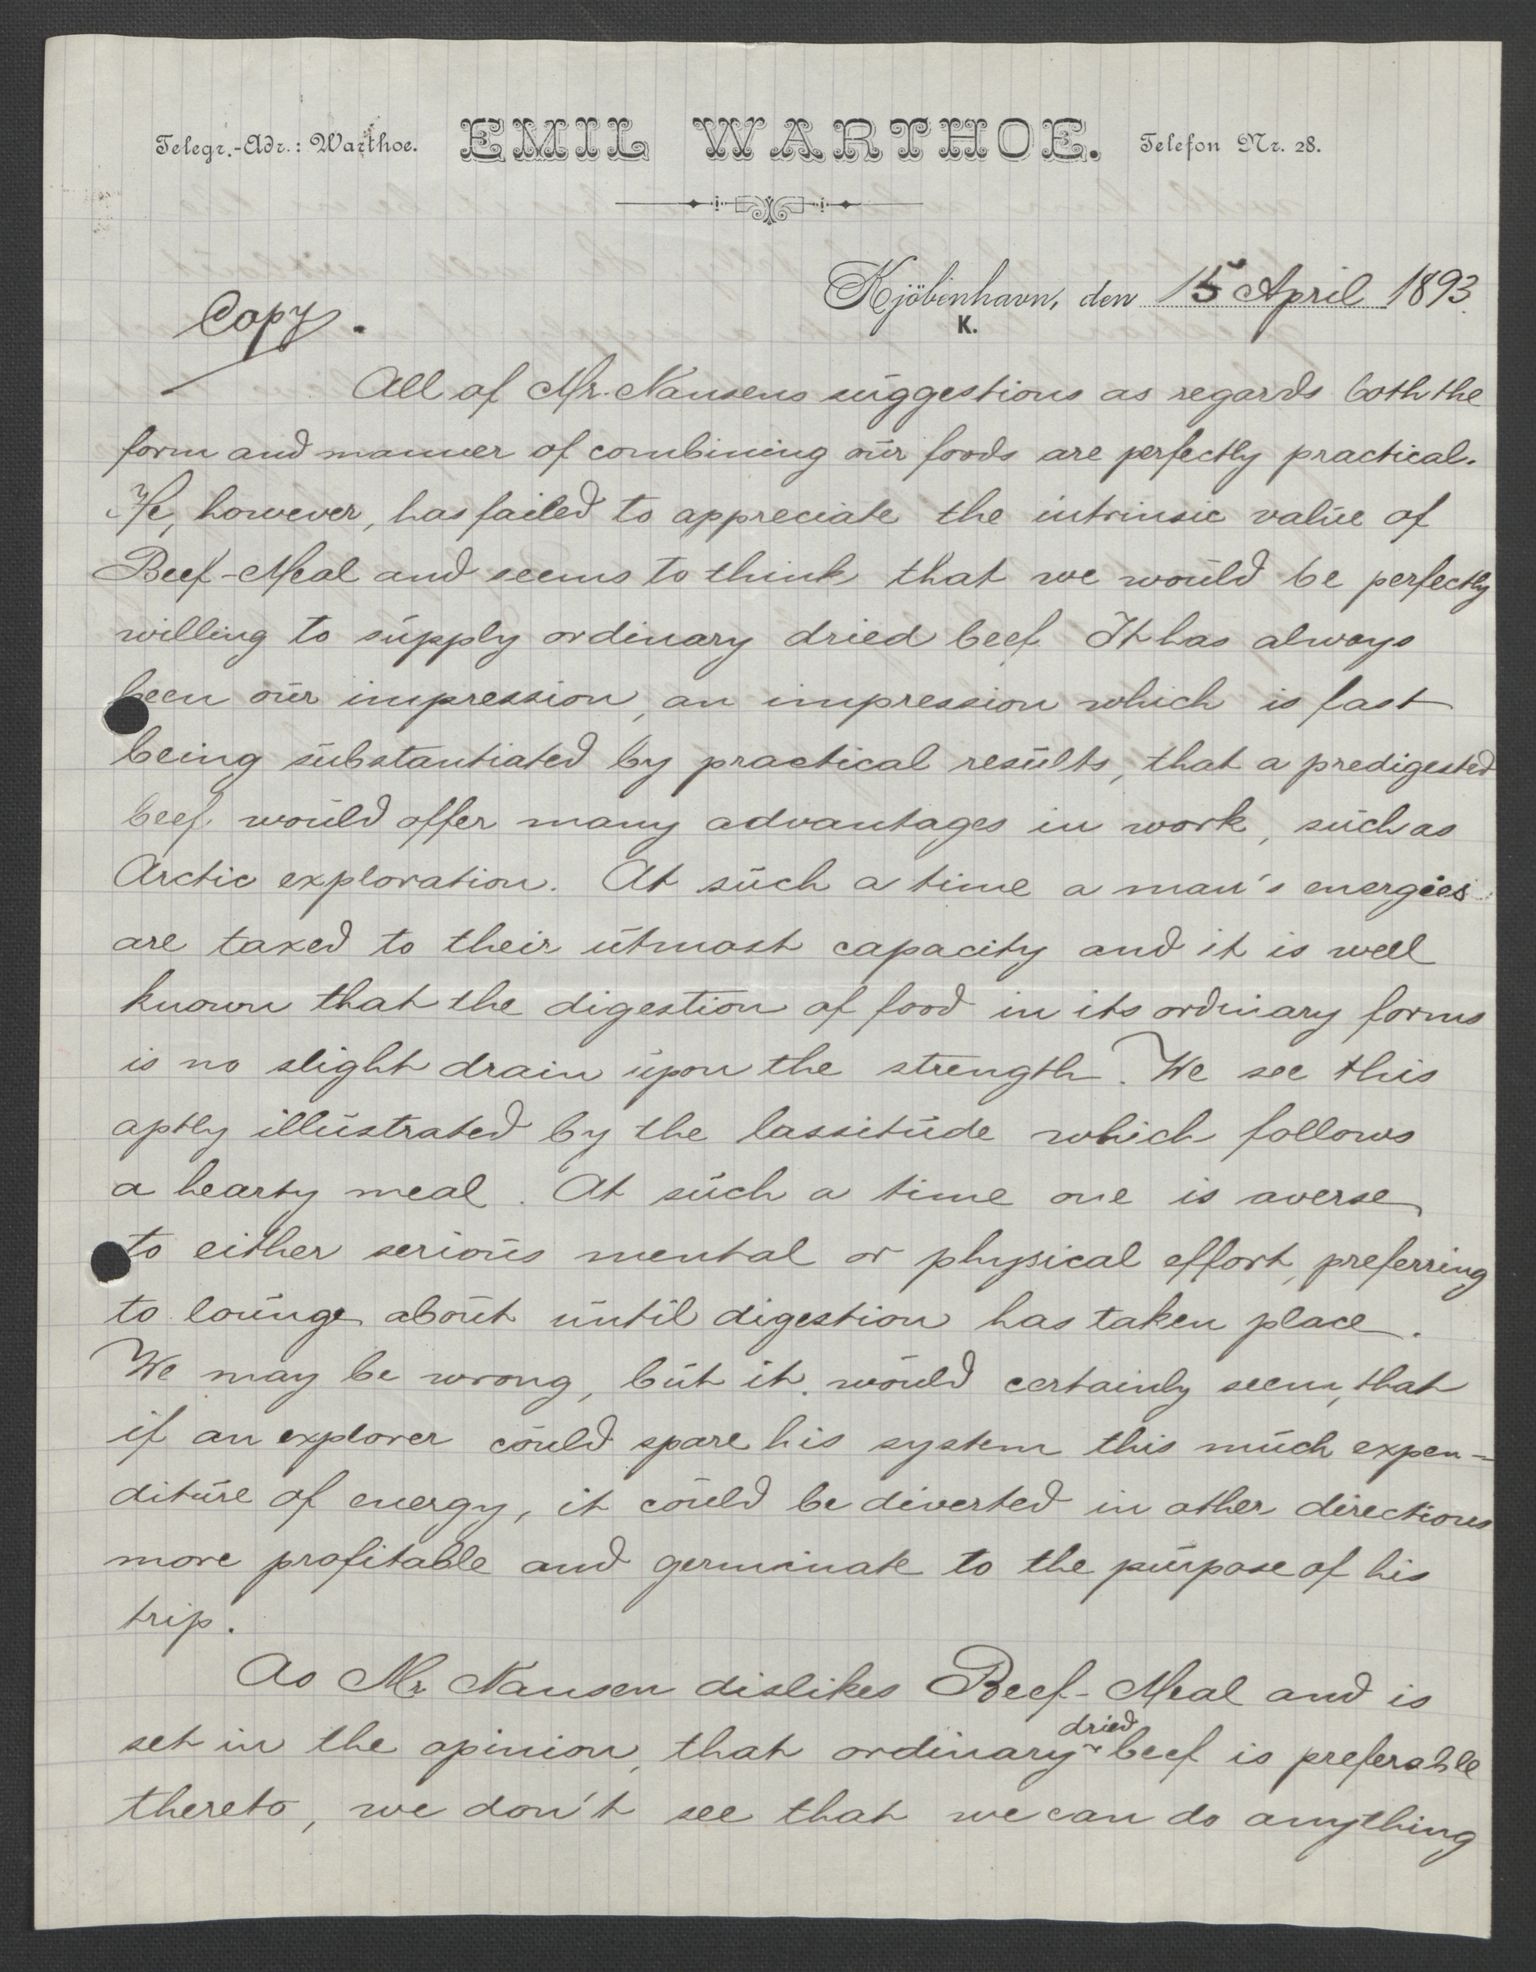 Telegr.-Adr.: Warthoe. EMIL WARTHOE. Telefon Nr. 28.
Kjöbenhavn, den 15 April 1893
K.
Copy.
All of Mr. Nansens suggestions as regards both the
form and manner of combining our foods are perfectly practical.
He, however, has failed to appreciate the intrinsic value of
Beef-Meal and seems to think that we would be perfectly
willing to supply ordinary dried beef. It has always
been our impression, an impression which is fast
being substantiated by practical results, that a predigested
beef would offer many advantages in work, such as
Arctic exploration. At such a time a man's energies
are taxed to their utmost capacity and it is well
known that the digestion of food in its ordinary forms
is no slight drain upon the strength. We see this
aptly illustrated by the lassitude which follows
a hearty meal. At such a time one is averse
to either serious mental or physical effort, preferring
to lounge about until digestion has taken place.
We may be wrong, but it would certainly seem, that
if an explorer could spare his system this much expen-
diture of energy, it could be diverted in other directions
more profitable and germinate to the purpose of his
trip.
As Mr Nansen dislikes Beef-Meal and is
set in the opinion, that ordinary dried beef is preferable
thereto, we don't see that we can do anything